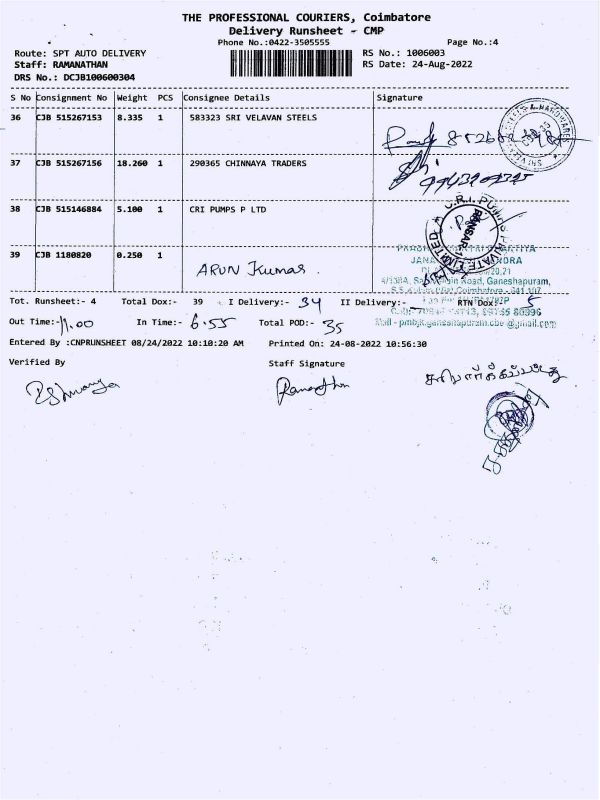 THE PROFESSIONAL COURIERS, Coimbatore
Delivery Runsheet - CMP
Phone No.:0422-3505555
Page No.:4
Route: SPT AUTO DELIVERY
RS No.: 1006003
Staff: RAMANATHAN
RS Date: 24-Aug-2022
DRS No.: DCJB100600304
S No Consignment No Weight PCS Consignee Details Signature
36 CJB 515267153 8.335 1 583323 SRI VELAVAN STEELS
37 CJB 515267156 18.260 1 290365 CHINNAYA TRADERS
38 CJB 515146884 5.100 1 CRI PUMPS P LTD
39 CJB 1180820 0.250 1
ARUN Kumar.
Road, Ganeshapuram,
Tot. Runsheet:- 4 Total Dox:- 39 I Delivery:- 34 II Delivery:- RTN Dox:- 5
Out Time:- 11.00 In Time:- 6.55 Total POD:- 35
Entered By :CNPRUNSHEET 08/24/2022 10:10:20 AM Printed On: 24-08-2022 10:56:30
Verified By Staff Signature
Ramanathan
சரிபார்க்கப்பட்டது